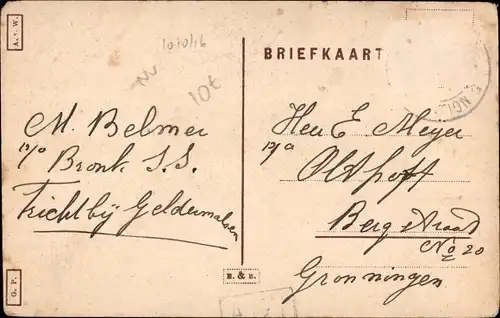 A. v. W.
10/10/16
NV
10t
BRIEFKAART
M. Belmer
p/a Bronk S.S.
Tricht bij Geldermalsen
Heer E. Meyer
p/a
Olthoff
Bergstraat
No 20
Gronningen
G. P.
E. & B.